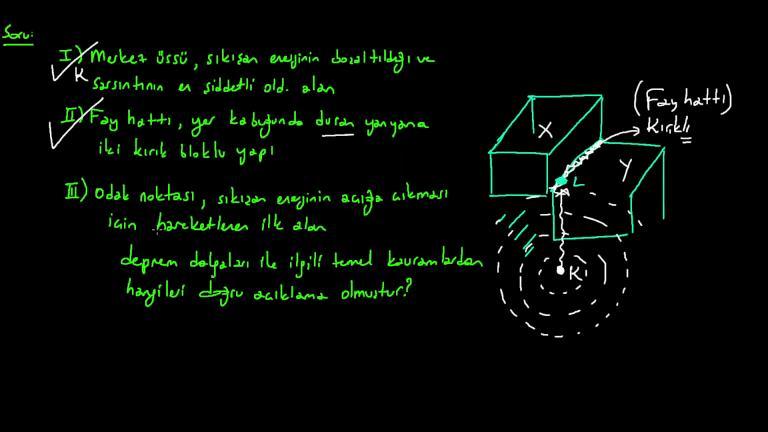 Soru:
I) Merkez üssü, sıkışan enerjinin boşaltıldığı ve
K
sarsıntının en şiddetli old. alan
II) Fay hattı, yer kabuğunda duran yanyana
iki kırık bloklu yapı
III) Odak noktası, sıkışan enerjinin açığa çıkması
için hareketlenen ilk alan
deprem dalgaları ile ilgili temel kavramlardan
hangileri doğru açıklama olmuştur?
(Fay hattı)
Kırıklı
X
Y
L
K